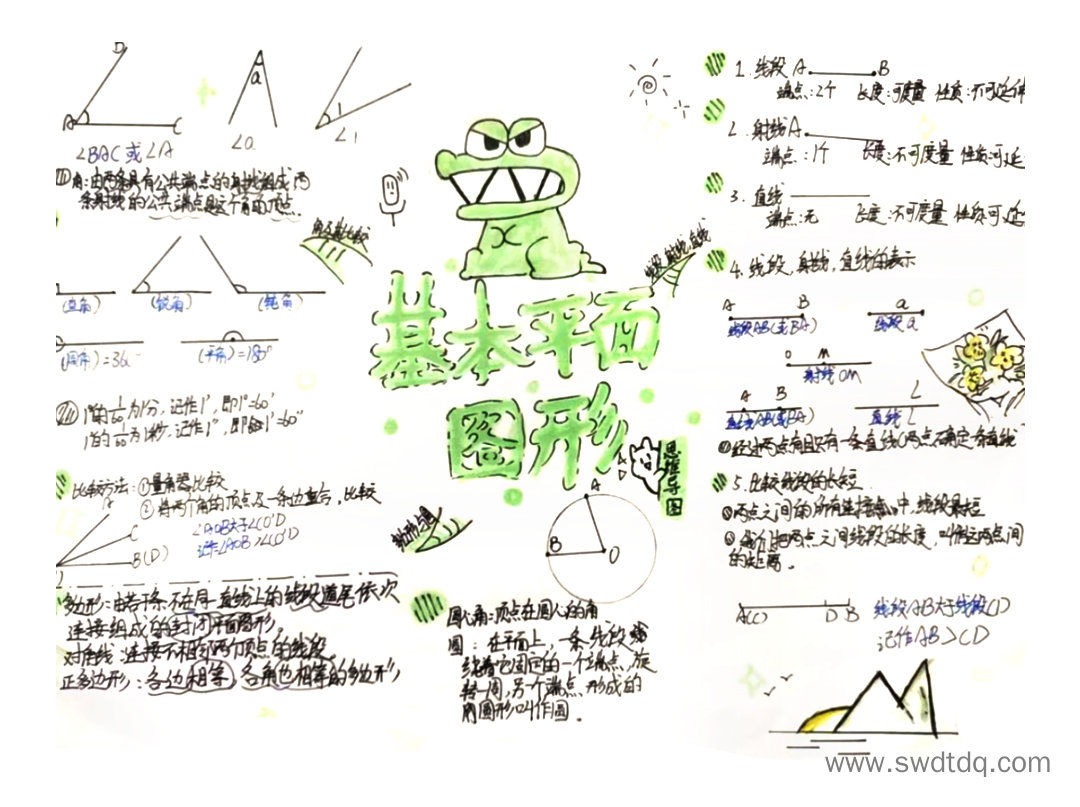 D
A
C
∠BAC 或∠A
a
∠a
1
∠1
角:由两条具有公共端点的射线组成,两
条射线的公共端点是这个角的顶点.
角及其比较
(直角)
(锐角)
(钝角)
(周角)=36
(平角)=180°
1°的1/60为1分,记作1′,即1°=60′
1′的1/60为1秒,记作1″,即1′=60″
比较方法:①量角器比较
②将两个角的顶点及一条边重合,比较
A
C
B(D)
∠AOB大于∠CO'D
记作∠AOB>∠CO'D
多边形:由若干条不在同一直线上的线段首尾依次
连接组成的封闭平面图形。
对角线:连接不相邻两个顶点的线段
正多边形:各边相等,各角也相等的多边形,
基本平面
图形
思维导图
线段,射线,直线
A
B
O
圆心角:顶点在圆心的角
圆:在平面上,一条线段绕
着它固定的一个端点,旋
转一周,另一个端点形成的
图形叫作圆。
1.线段 A B
端点:2个 长度:可度量 性质:不可延伸
2.射线 A
端点:1个 长度:不可度量 性质:可延
3.直线
端点:无 长度:不可度量 性质:可延
4.线段,射线,直线的表示
A B
线段AB(或BA)
a
线段a
O m
射线OM
A B
直线AB(或BA)
L
直线L
①经过两点有且只有一条直线(两点确定一条直线
5.比较线段的长短
①两点之间的所有连接线中,线段最短
②我们把两点之间线段的长度,叫做这两点间
的距离。
A(C) D B
线段AB大于线段CD
记作AB>CD
www.swdtdq.com